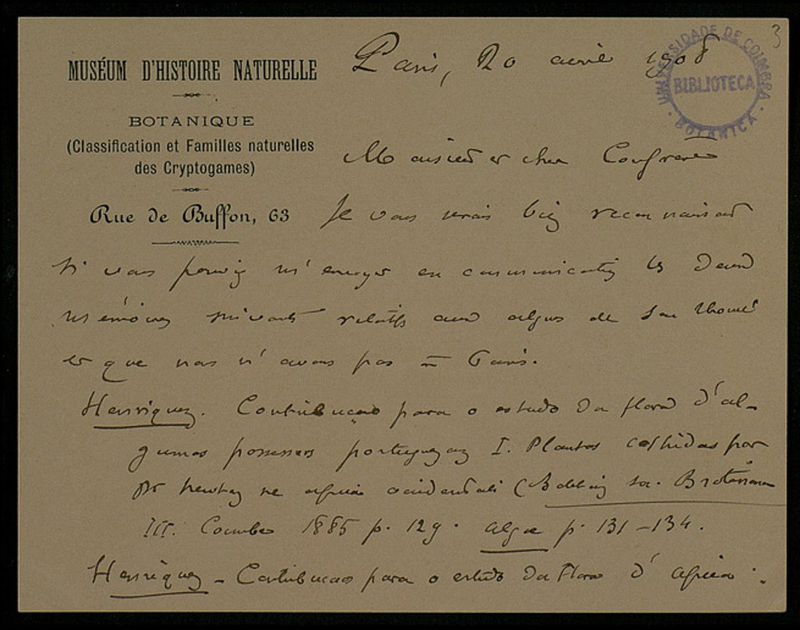 3
MUSÉUM D'HISTOIRE NATURELLE
BOTANIQUE
(Classification et Familles naturelles
des Cryptogames)
Rue de Buffon, 63
UNIVERSIDADE DE COIMBRA
BIBLIOTECA
BOTANICA
Paris, 20 avril 1908
Monsieur et cher Confrere
Je vous serais bien reconnaissant
si vous pouviez m'envoyer en communication les deux
mémoires suivants relatifs aux algues de San Thomé
et que nous n'avons pas à Paris.
Henriquez. Contribuçao para o estudo da flora d'al-
gumas possessoes portuguezas I. Plantas colhidas por
F. Newton na Africa occidental (Boletin soc. Broteriana
III. Coimbra 1885 p. 129. Algae p. 131-134.
Henriquez - Contribucao para o estudo da Flora d'Africa